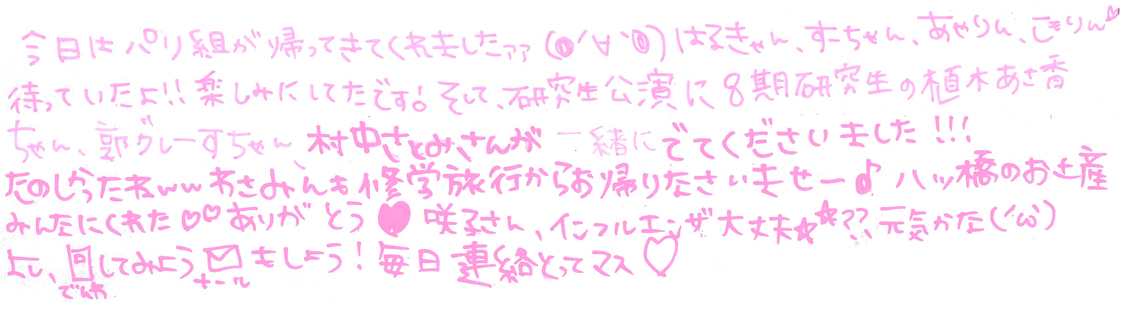 今日はパリ組が帰ってきてくれましたァァ(◎´∀`◎)はるきゃん、すーちゃん、あやりん、こもりん♡
待っていたよ!!楽しみにしてたです!そして、研究生公演に8期研究生の植木あさ香
ちゃん、郭グレーすちゃん、村中さとみさんが一緒にでてくださいました!!!
たのしかったねwwわさみんも修学旅行からお帰りなさいませー♪八ッ橋のおみ産
みんなにくれた♡♡ありがとう♥咲子さん、インフルエンザ大丈夫☆☆??元気かな('ω')
よし、してみよう✉もしよう!毎日連絡とってマス♡
でんわ メール